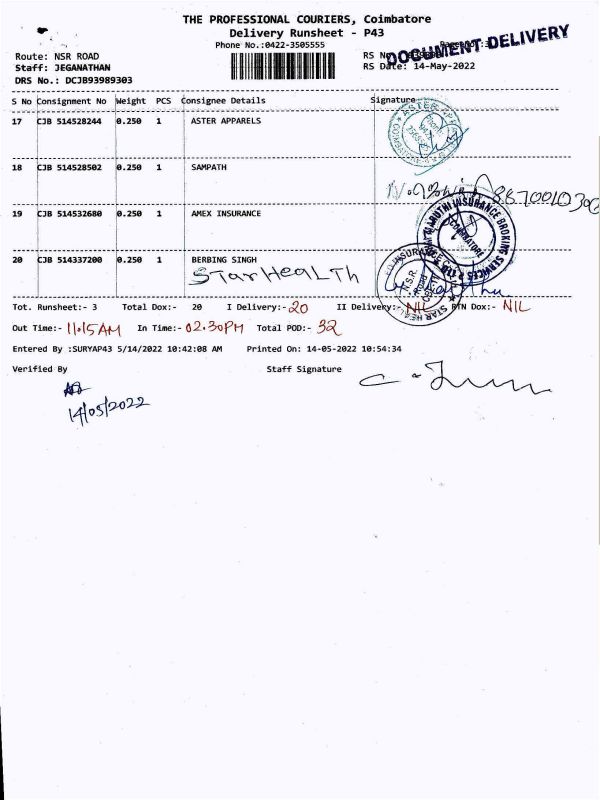 THE PROFESSIONAL COURIERS, Coimbatore
Delivery Runsheet - P43
Phone No.:0422-3505555
DOCUMENT DELIVERY
Route: NSR ROAD RS No
Staff: JEGANATHAN RS Date: 14-May-2022
DRS No.: DCJB93989303
S No Consignment No Weight PCS Consignee Details Signature
17 CJB 514528244 0.250 1 ASTER APPARELS
18 CJB 514528502 0.250 1 SAMPATH
19 CJB 514532680 0.250 1 AMEX INSURANCE
MARUTHI INSURANCE BROKING SERVICES P LTD
COIMBATORE
20 CJB 514337200 0.250 1 BERBING SINGH
STar HeaLTh
N.S.R. Road
Tot. Runsheet:- 3 Total Dox:- 20 I Delivery:- 20 II Delivery:- NIL RTN Dox:- NIL
Out Time:- 11.15 AM In Time:- 02.30PM Total POD:- 32
Entered By :SURYAP43 5/14/2022 10:42:08 AM Printed On: 14-05-2022 10:54:34
Verified By Staff Signature
14/05/2022